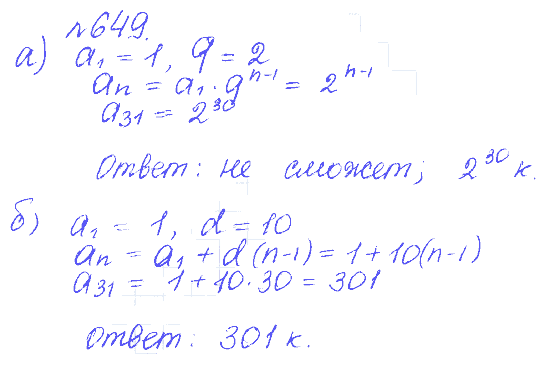 №649.
а) a₁ = 1, q = 2
aₙ = a₁·qⁿ⁻¹ = 2ⁿ⁻¹
a₃₁ = 2³⁰
Ответ: не сможет; 2³⁰ к.
б) a₁ = 1, d = 10
aₙ = a₁ + d(n-1) = 1 + 10(n-1)
a₃₁ = 1 + 10·30 = 301
Ответ: 301 к.